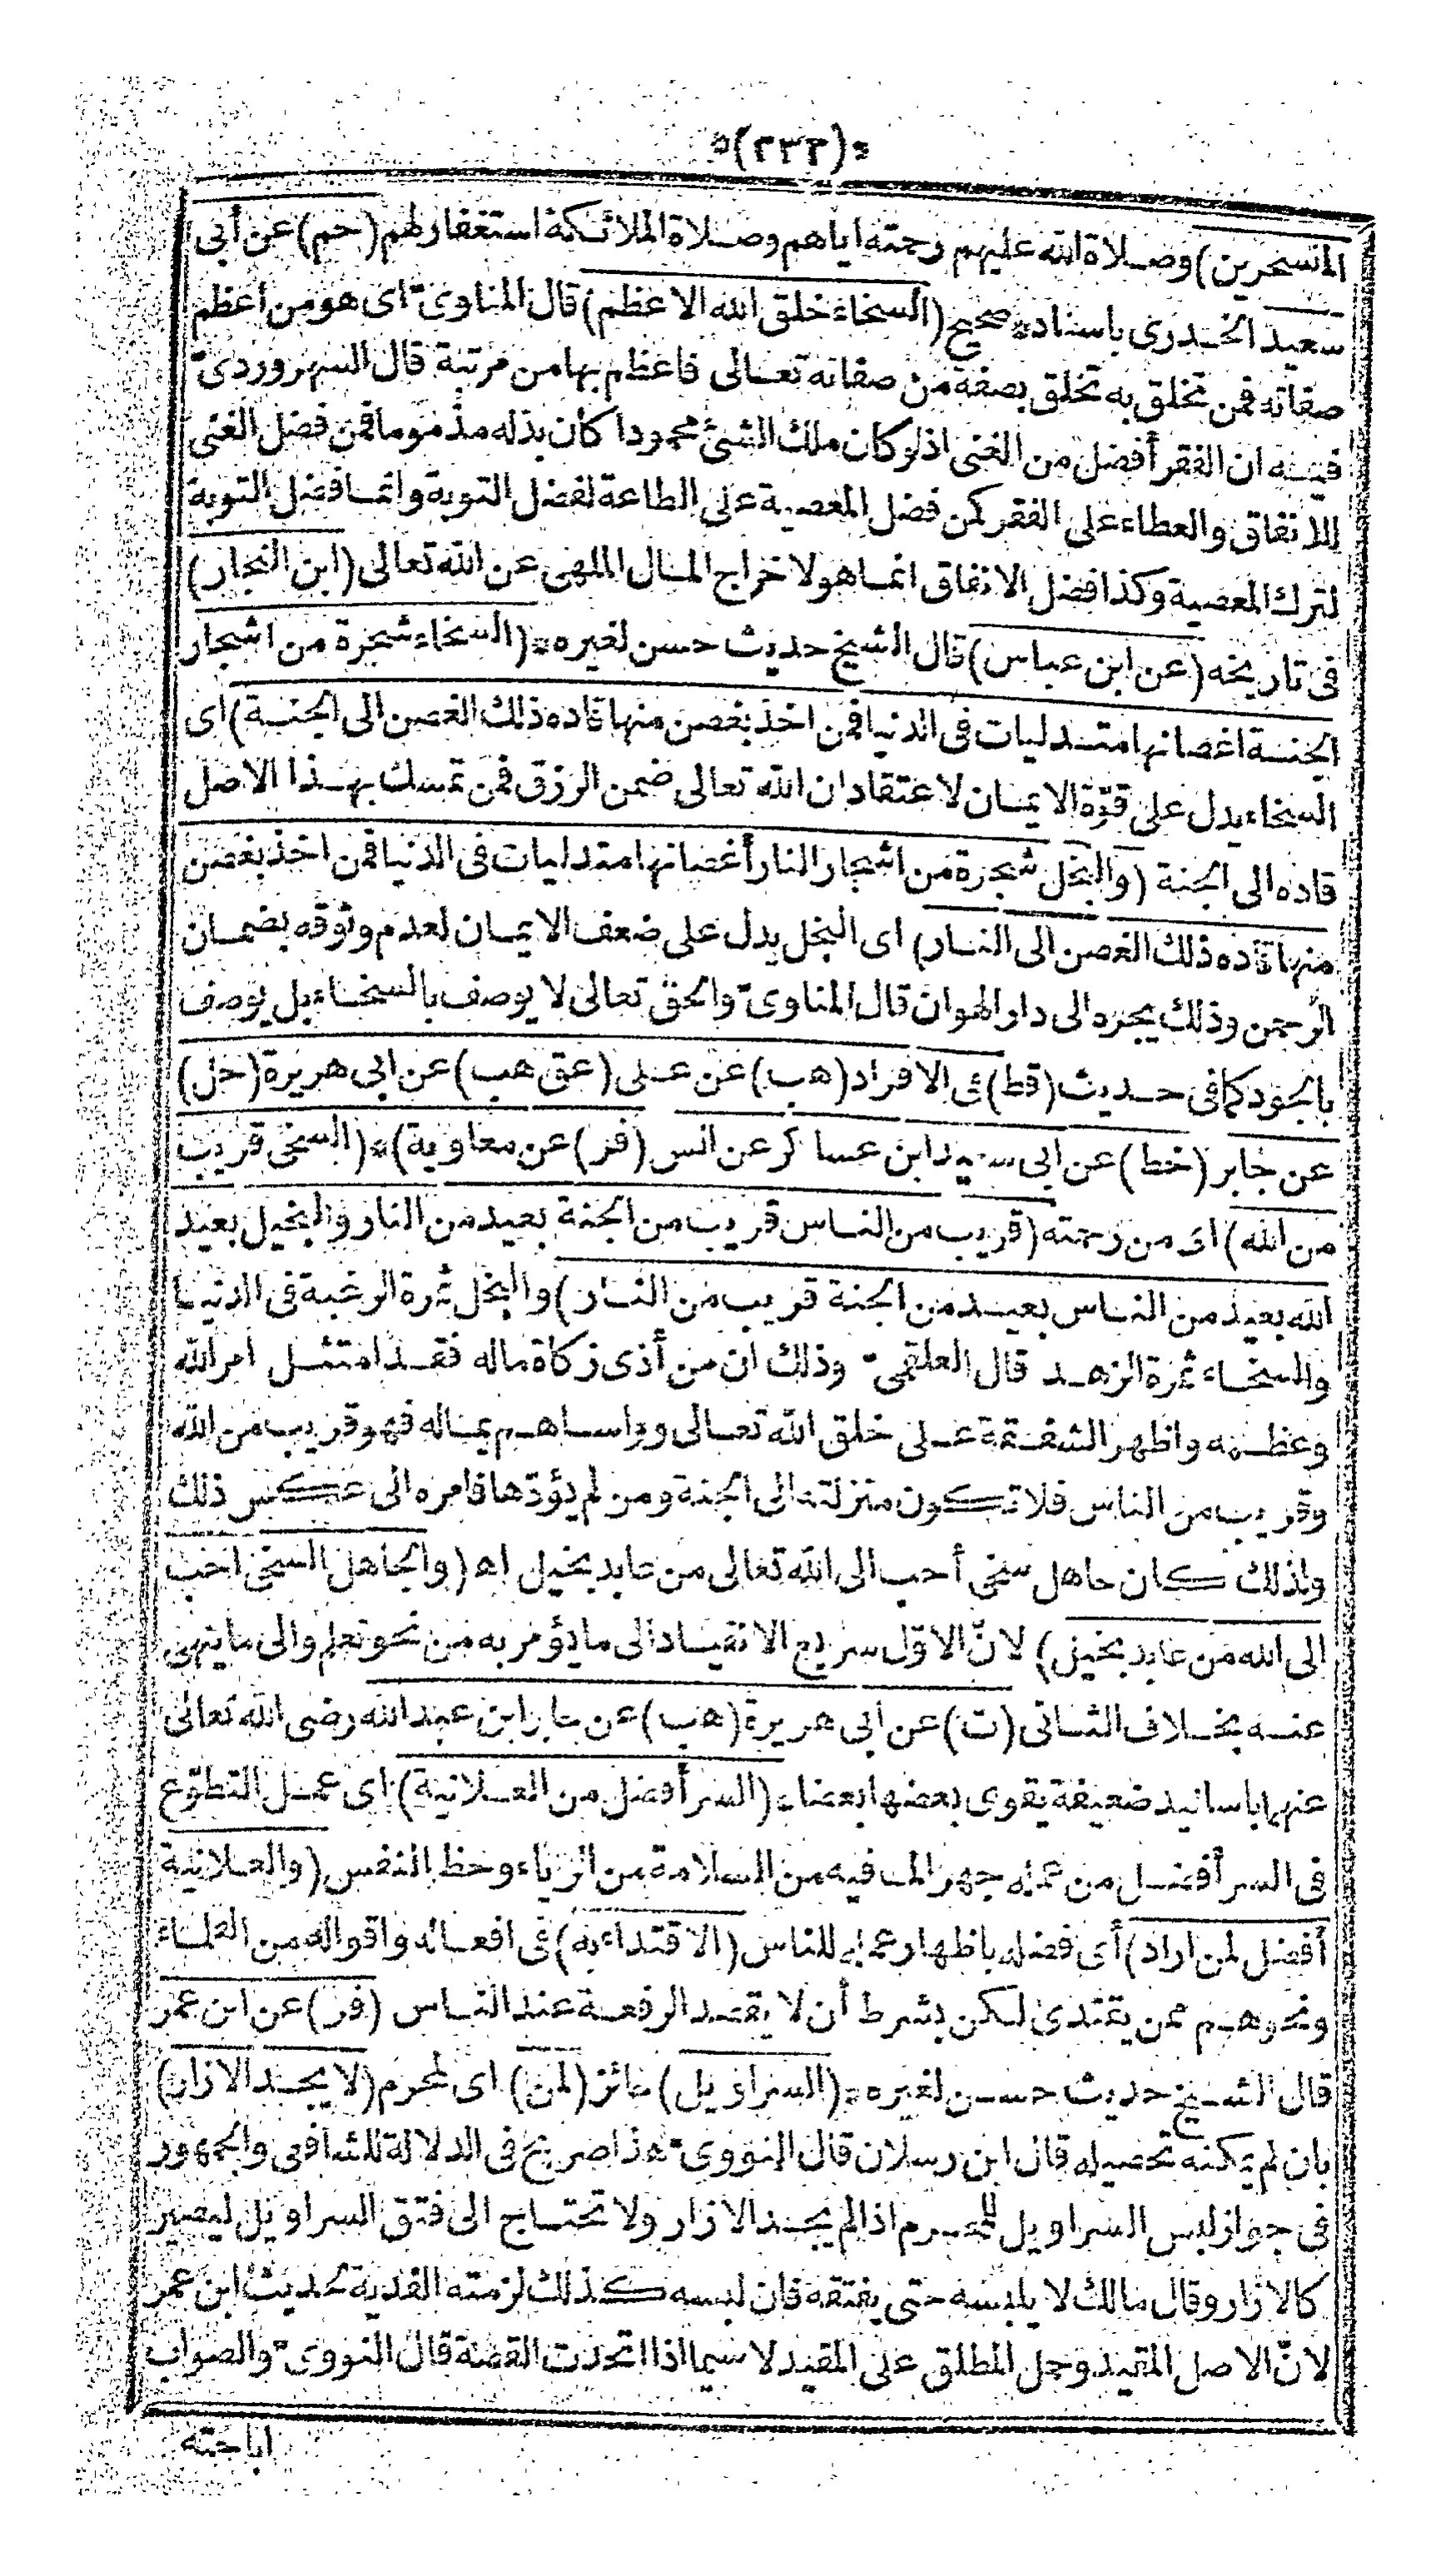 *(٣٣٢)*
المتسحرين) وصلاة الله عليهم رحمته اياهم وصلاة الملائكة استغفارلهم (حم) عن أبى
سعيد الخدرى باسناد صحيح (السخاء خلق الله الاعظم) قال المناوى اى هو من اعظم
صفاته فمن تخلق به تخلق بصفة من صفاته تعالى فاعظم بها من مرتبة قال السهروردى
فيه ان الفقر أفضل من الغنى اذلو كان ملك الشئ محمودا كان بذله مذموما فمن فضل الغنى
للانفاق والعطاء على الفقر كمن فضل المعصية على الطاعة لفضل التوبة وانما فضل التوبة
لترك المعصية وكذا فضل الانفاق انما هو لاخراج المال الملهى عن الله تعالى (ابن النجار)
فى تاريخه (عن ابن عباس) قال الشيخ حديث حسن لغيره * (السخاء شجرة من اشجار
الجنة اغصانها متدليات فى الدنيا فمن اخذ بغصن منها قاده ذلك الغصن الى الجنة) اى
السخاء يدل على قوّة الايمان لاعتقاد ان الله تعالى ضمن الرزق فمن تمسك بهذا الاصل
قاده الى الجنة (والبخل شجرة من اشجار النار أغصانها متدليات فى الدنيا فمن اخذ بغصن
منها قاده ذلك الغصن الى النار) اى البخل يدل على ضعف الايمان لعدم وثوقه بضمان
الرحمن وذلك يجره الى دار الهوان قال المناوى والحق تعالى لا يوصف بالسخاء بل يوصف
بالجود كما فى حديث (قط) فى الافراد (هب) عن على (عق هب) عن ابى هريرة (حل)
عن جابر (خط) عن ابى سعيد ابن عساكر عن انس (فر) عن معاوية) * (السخى قريب
من الله) اى من رحمته (قريب من الناس قريب من الجنة بعيد من النار والبخيل بعيد
الله بعيد من الناس بعيد من الجنة قريب من النار) والبخل ثمرة الرغبة فى الدنيا
والسخاء ثمرة الزهد قال العلقمى وذلك ان من أدى زكاة ماله فقد امتثل امر الله
وعظمه واظهر الشفقة على خلق الله تعالى وواساهم بماله فهو قريب من الله
وقريب من الناس فلا تكون منزلته الى الجنة ومن لم يؤدّها فامره الى عكس ذلك
ولذلك كان جاهل سخى أحب الى الله تعالى من عابد بخيل اه (والجاهل السخى احب
الى الله من عابد بخيل) لانّ الاوّل سريع الانقياد الى ما يؤمر به من نحو تعلم والى ما ينهى
عنه بخلاف الثانى (ت) عن ابى هريرة (هب) عن جابر ابن عبد الله رضى الله تعالى
عنهما باسانيد ضعيفة يقوى بعضها بعضا * (السر أفضل من العلانية) اى عمل التطوّع
فى السر أفضل من عمله جهرا لما فيه من السلامة من الرياء وحظ النفس (والعلانية
أفضل لمن اراد) أى فضله باظهار عمله للناس (الاقتداء به) فى افعاله واقواله من العلماء
ونحوهم ممن يقتدى لكن بشرط أن لا يقصد الرفعة عند الناس (فر) عن ابن عمر
قال الشيخ حديث حسن لغيره * (السراويل) جائز (لمن) اى لمحرم (لا يجد الازار)
بان لم يمكنه تحصيله قال ابن رسلان قال النووى هذا صريح فى الدلالة للشافعى والجمهور
فى جواز لبس السراويل للمحرم اذا لم يجد الازار ولا تحتاج الى فتق السراويل ليصير
كالازار وقال مالك لا يلبسه حتى يفتقه فان لبسه كذلك لزمته الفدية لحديث ابن عمر
لانّ الاصل المقيد وحمل المطلق على المقيد لا سيما اذا اتحدت القصة قال النووى والصواب
اباحته